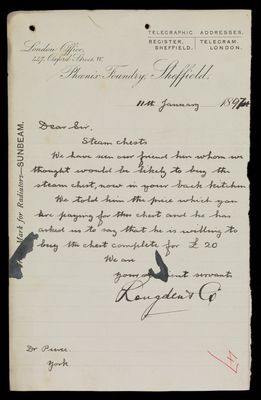 TELEGRAPHIC ADDRESSES.
REGISTER, SHEFFIELD.
TELEGRAM, LONDON.
London Office,
447, Oxford Street, W.
Phœnix Foundry, Sheffield.
11th January 189
Mark for Radiators—SUNBEAM.
Dear Sir,
Steam chests
We have seen our friend here whom we
thought would be likely to buy the
steam chest, now in your back kitchen
We told him the price which you
are paying for this chest and he has
asked us to say that he is willing to
buy the chest complete for £ 20
We are
your servants
Longden & Co
Dr Pierce.
York.
47